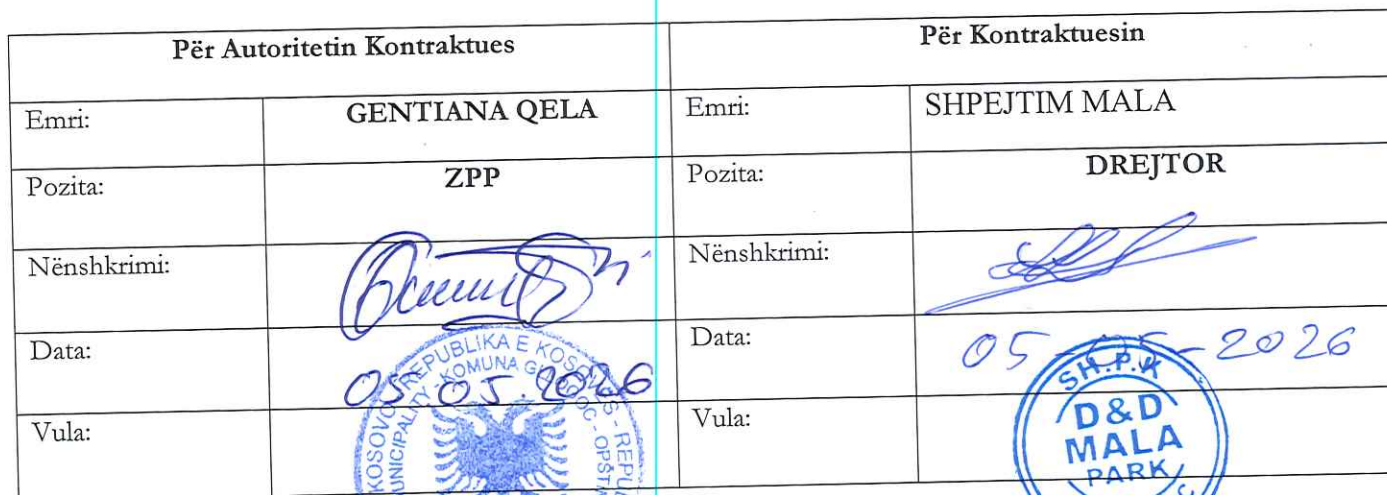 Për Autoritetin Kontraktues
Për Kontraktuesin
Emri:
GENTIANA QELA
Emri:
SHPEJTIM MALA
Pozita:
ZPP
Pozita:
DREJTOR
Nënshkrimi:
Nënshkrimi:
Data:
05.05.2026
Data:
05-05-2026
Vula:
REPUBLIKA E KOSOVËS - REPU
KOSOVO
KOMUNA
MUNICIPALITY
Vula:
SH.P.K
D&D
MALA
PARK